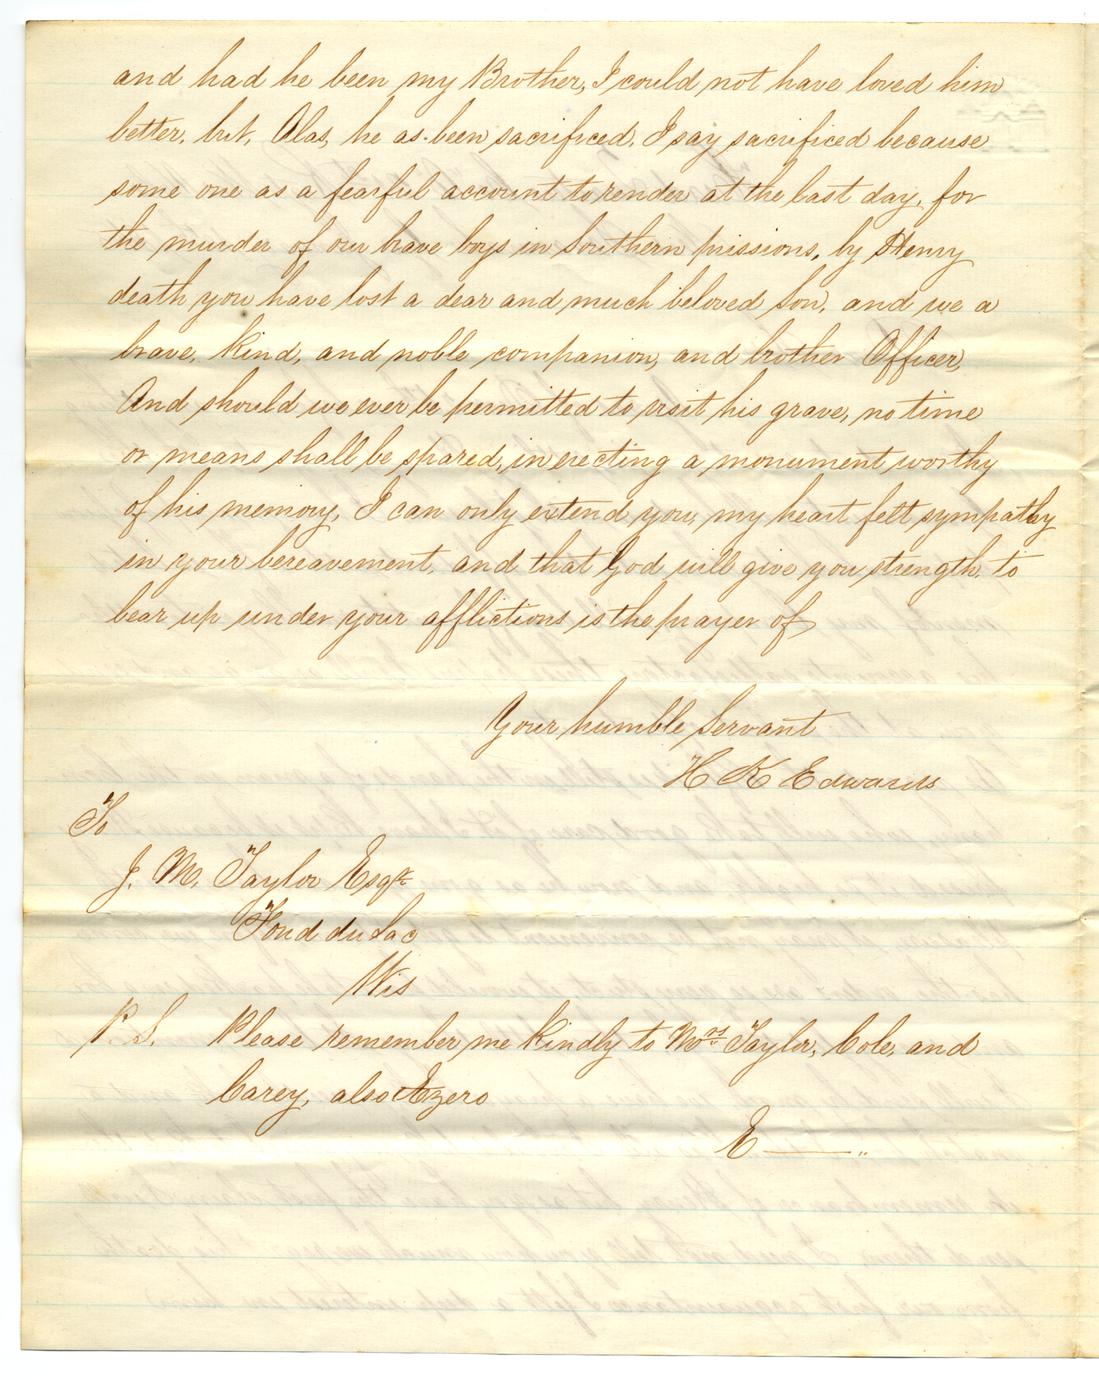 and had he been my Brother, I could not have loved him
better, but, Alas, he as been sacrificed. I say sacrificed because
some one as a fearful account to render at the last day, for
the murder of our brave boys in Southern prissions, by Henry
death you have lost a dear and much beloved Son, and we a
brave, kind, and noble companion, and brother Officer,
And should we ever be permitted to visit his grave, no time
or means shall be spared, in erecting a monument worthy
of his memory, I can only extend you, my heart felt sympathy
in your bereavement, and that God will give you strength, to
bear up under your afflictions is the prayer of
Your humble Servant
H K Edwards
To
J. M. Taylor Esqr
Fond du Lac
Wis
P. S. Please remember me kindly to Mrs Taylor, Cole, and
Carey, also Ezero
E